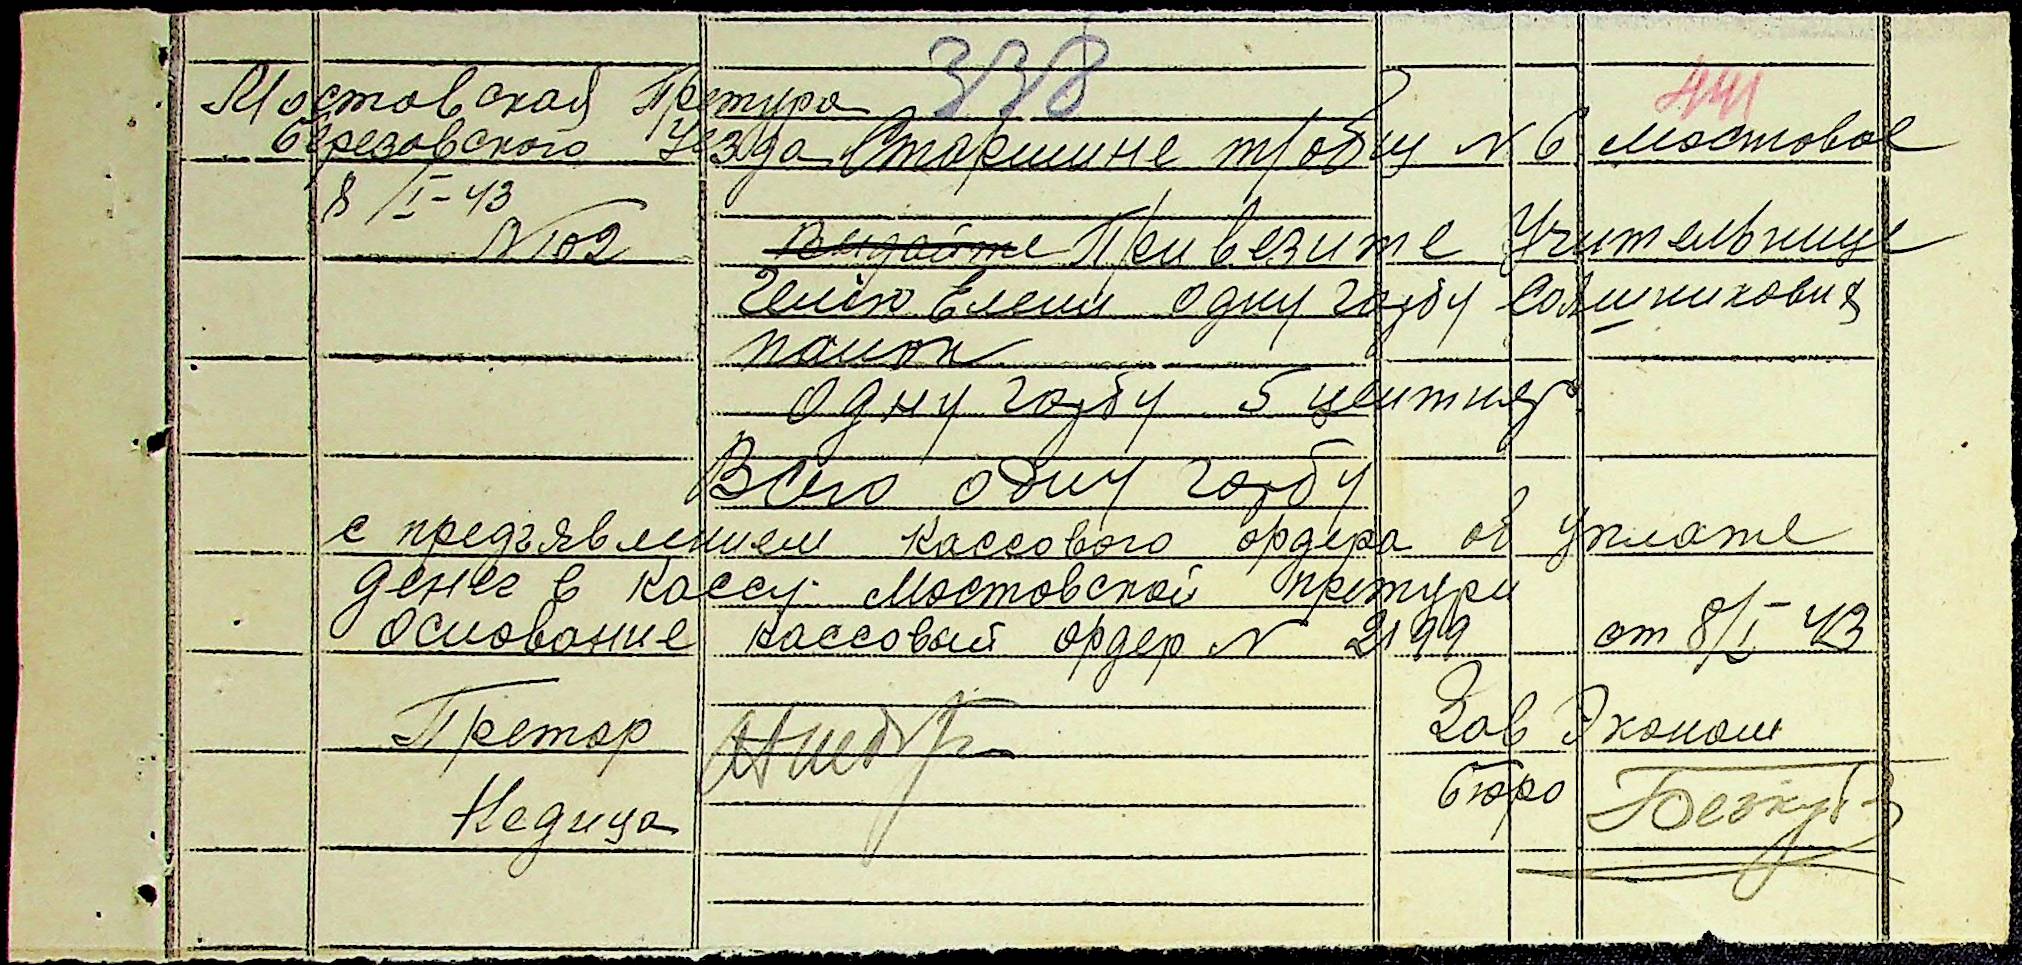 338
441
Мостовская Претура
Березовского Уезда Старшине т/общ N 6 Мостовое
8/I-43
N 102 выдайте Привезите Учительнице
Гению Елени одну гарбу
палок
одну гарбу 5 центнер
Всего одну гарбу
с предъявлением кассового ордера об уплате
денег в кассу Мостовской претури
Основание кассовый ордер N 2199 от 8/I 43
Претор Зав Эконом
Недица бюро